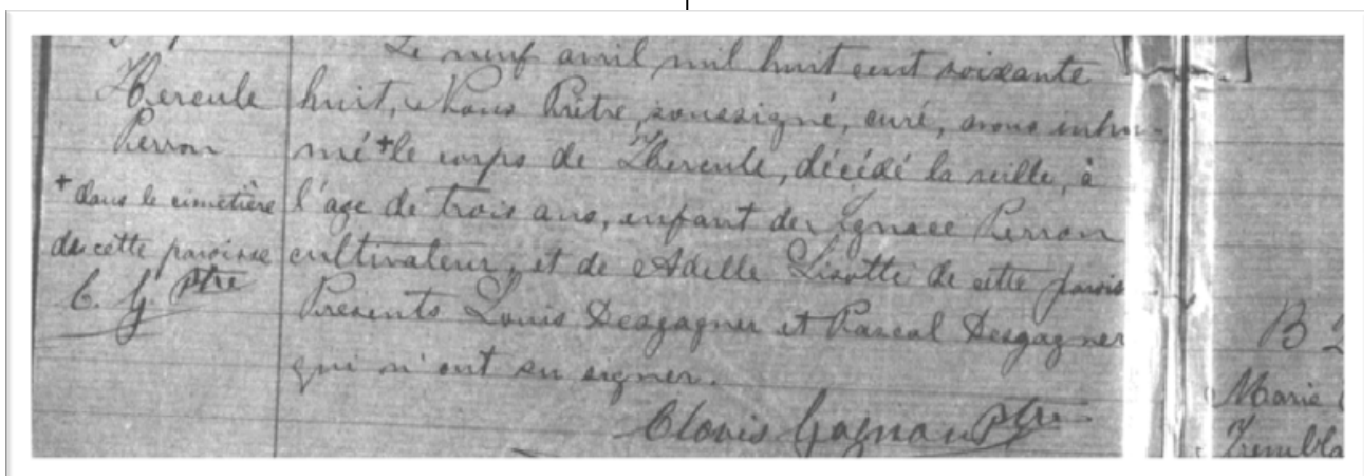 Hercule
Perron
+ dans le cimetière
de cette paroisse
C. G. Ptre
Le neuf avril mil huit cent soixante
huit, Nous Prêtre, soussigné, curé, avons inhu-
mé + le corps de Lhercule, décédé la veille, à
l'age de trois ans, enfant de Ignace Perron
cultivateur, et de Adelle Lizotte de cette parois
Presents Louis Desgagner et Pascal Desgagner
qui n'ont su signer.
Clovis Gagnon Ptre.
B
Marie
Trembla